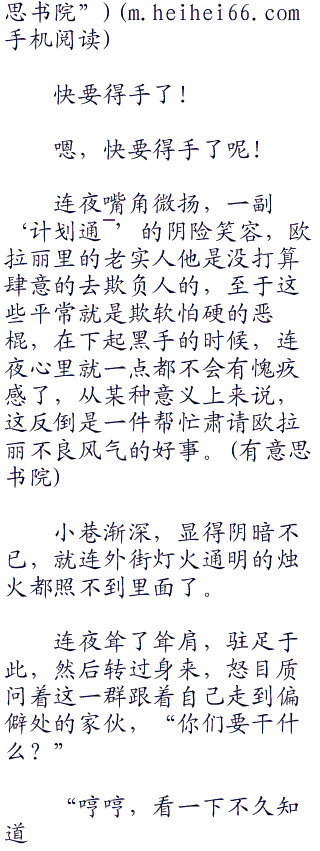 思书院”)(m.heihei66.com
手机阅读)
快要得手了!
嗯，快要得手了呢!
连夜嘴角微扬，一副
‘计划通’的阴险笑容，欧
拉丽里的老实人他是没打算
肆意的去欺负人的，至于这
些平常就是欺软怕硬的恶
棍，在下起黑手的时候，连
夜心里就一点都不会有愧疚
感了，从某种意义上来说，
这反倒是一件帮忙肃请欧拉
丽不良风气的好事。(有意思
书院)
小巷渐深，显得阴暗不
已，就连外街灯火通明的烛
火都照不到里面了。
连夜耸了耸肩，驻足于
此，然后转过身来，怒目质
问着这一群跟着自己走到偏
僻处的家伙，“你们要干什
么？”
“哼哼，看一下不久知
道